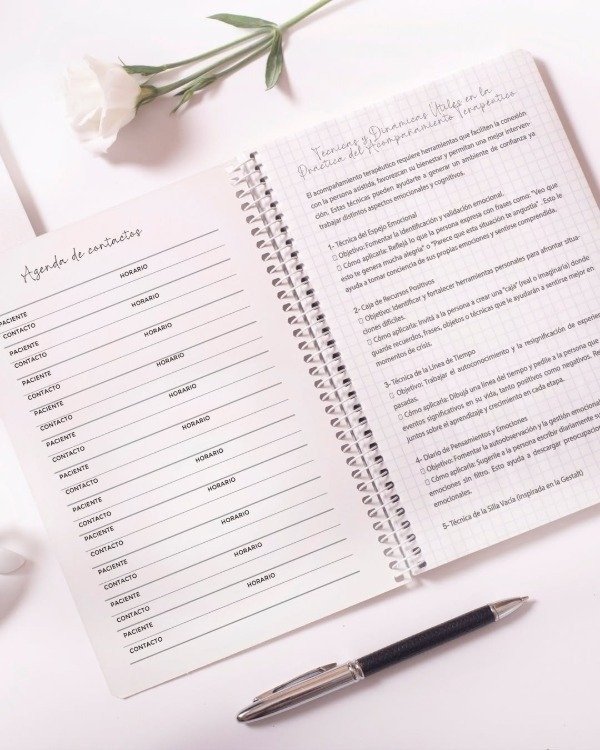 Agenda de contactos
PACIENTE HORARIO
CONTACTO
PACIENTE HORARIO
CONTACTO
PACIENTE HORARIO
CONTACTO
PACIENTE HORARIO
CONTACTO
PACIENTE HORARIO
CONTACTO
PACIENTE HORARIO
CONTACTO
PACIENTE HORARIO
CONTACTO
PACIENTE HORARIO
CONTACTO
PACIENTE HORARIO
CONTACTO
PACIENTE HORARIO
CONTACTO
PACIENTE HORARIO
CONTACTO
Técnicas y Dinámicas Útiles en la
Práctica del Acompañamiento Terapéutico
El acompañamiento terapéutico requiere herramientas que faciliten la conexión
con la persona asistida, favorezcan su bienestar y permitan una mejor interven-
ción. Estas técnicas pueden ayudarte a generar un ambiente de confianza ya
trabajar distintos aspectos emocionales y cognitivos.
1- Técnica del Espejo Emocional
Objetivo: Fomentar la identificación y validación emocional.
Cómo aplicarla: Reflejá lo que la persona expresa con frases como: "Veo que
esto te genera mucha alegría" o "Parece que esta situación te angustia". Esto le
ayuda a tomar conciencia de sus propias emociones y sentirse comprendida.
2- Caja de Recursos Positivos
Objetivo: Identificar y fortalecer herramientas personales para afrontar situa-
ciones difíciles.
Cómo aplicarla: Invitá a la persona a crear una "caja" (real o imaginaria) donde
guarde recuerdos, frases, objetos o técnicas que le ayudarán a sentirse mejor en
momentos de crisis.
3- Técnica de la Línea de Tiempo
Objetivo: Trabajar el autoconocimiento y la resignificación de experien
pasadas.
Cómo aplicarla: Dibujá una línea del tiempo y pedile a la persona que
eventos significativos en su vida, tanto positivos como negativos. Re
juntos sobre el aprendizaje y crecimiento en cada etapa.
4- Diario de Pensamientos y Emociones
Objetivo: Fomentar la autoobservación y la gestión emocional
Cómo aplicarla: Sugerile a la persona escribir diariamente su
emociones sin filtro. Esto ayuda a descargar preocupacio
emocionales.
5- Técnica de la Silla Vacía (Inspirada en la Gestalt)